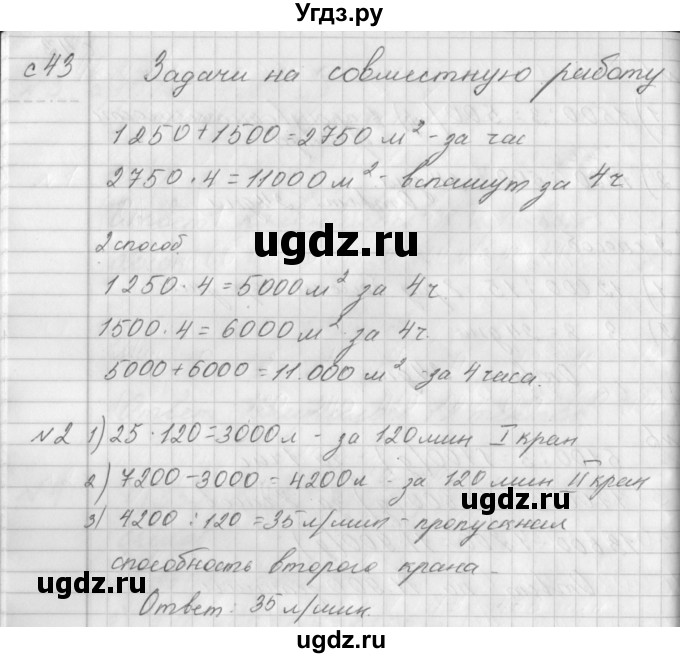 Угдз.ру
с 43 Задачи на совместную работу
1250+1500=2750 м² - за час
2750·4=11000 м² - вспашут за 4 ч
2 способ.
ugdz.ru
1250·4=5000 м² за 4 ч.
1500·4=6000 м² за 4 ч.
5000+6000=11.000 м² - за 4 часа.
ugdz.ru
№2 1) 25·120=3000 л - за 120 мин I кран
2) 7200-3000=4200 л - за 120 мин II кран
ugdz.ru
3) 4200:120=35 л/мин - пропускная
способность второго крана -
ugdz.ru
Ответ: 35 л/мин.
ugdz.ru